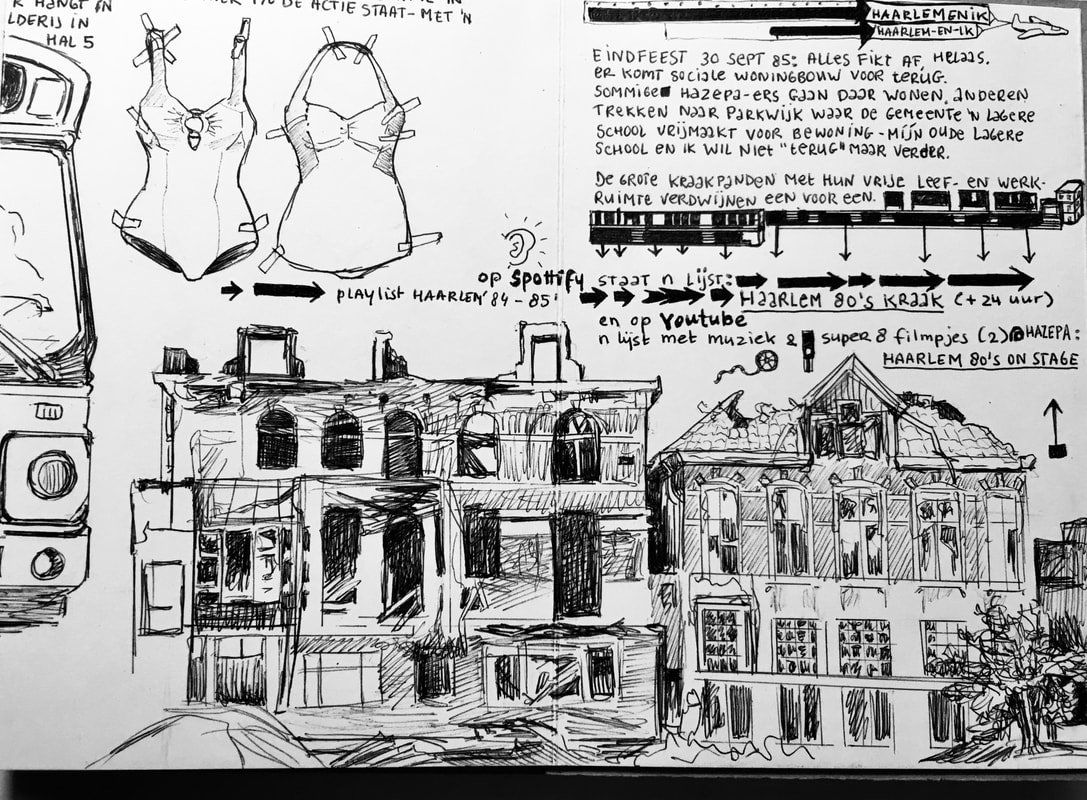 DE ACTIE STAAT - MET 'N
HANGT EN
LDERIJ IN
HAL 5
HAARLEMENIK
HAARLEM-EN-IK
EINDFEEST 30 SEPT 85: ALLES FIKT AF, HELAAS.
ER KOMT SOCIALE WONINGBOUW VOOR TERUG.
SOMMIGE HAZEPA-ERS GAAN DAAR WONEN, ANDEREN
TREKKEN NAAR PARKWIJK WAAR DE GEMEENTE 'N LAGERE
SCHOOL VRIJMAAKT VOOR BEWONING - MIJN OUDE LAGERE
SCHOOL EN IK WIL NIET "TERUG" MAAR VERDER.
DE GROTE KRAAKPANDEN MET HUN VRIJE LEEF- EN WERK-
RUIMTE VERDWIJNEN EEN VOOR EEN.
op Spottify STAAT 'N LIJST:
playlist HAARLEM '84 - 85'
HAARLEM 80'S KRAAK (+24 uur)
en op Youtube
'n lijst met muziek & super 8 filmpjes (2) @HAZEPA:
HAARLEM 80'S ON STAGE